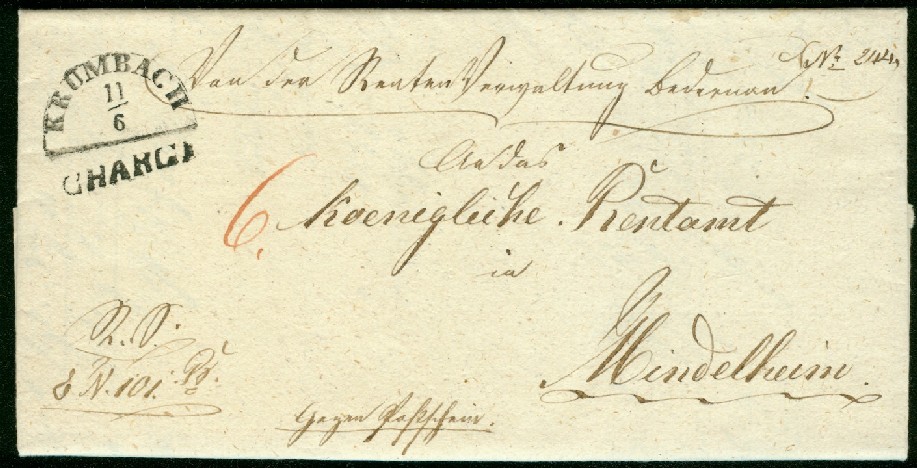 KRUMBACH
11
6
CHARGÉ
Von der Renten Verwaltung Bedernau
No
An das
6.
Koenigliche Rentamt
in
Mindelheim.
R. S.
N. 101.
Gegen Postschein.